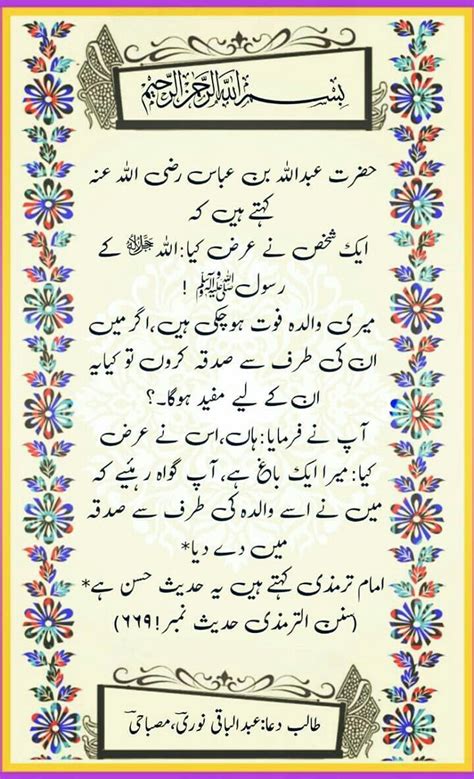 بسم الله الرحمن الرحیم
حضرت عبداللہ بن عباس رضی اللہ عنہ
کہتے ہیں کہ
ایک شخص نے عرض کیا:اللہ ﷻ کے
رسول ﷺ !
میری والدہ فوت ہوچکی ہیں،اگر میں
ان کی طرف سے صدقہ کروں تو کیایہ
ان کے لیے مفید ہوگا۔؟
آپ نے فرمایا:ہاں،اس نے عرض
کیا:میرا ایک باغ ہے،آپ گواہ رہئیے کہ
میں نے اسے والدہ کی طرف سے صدقہ
میں دے دیا*
امام ترمذی کہتے ہیں یہ حدیث حسن ہے*
(سنن الترمذی حدیث نمبر!۶۶۹)
طالب دعا:عبدالباقی نوری،مصباحی